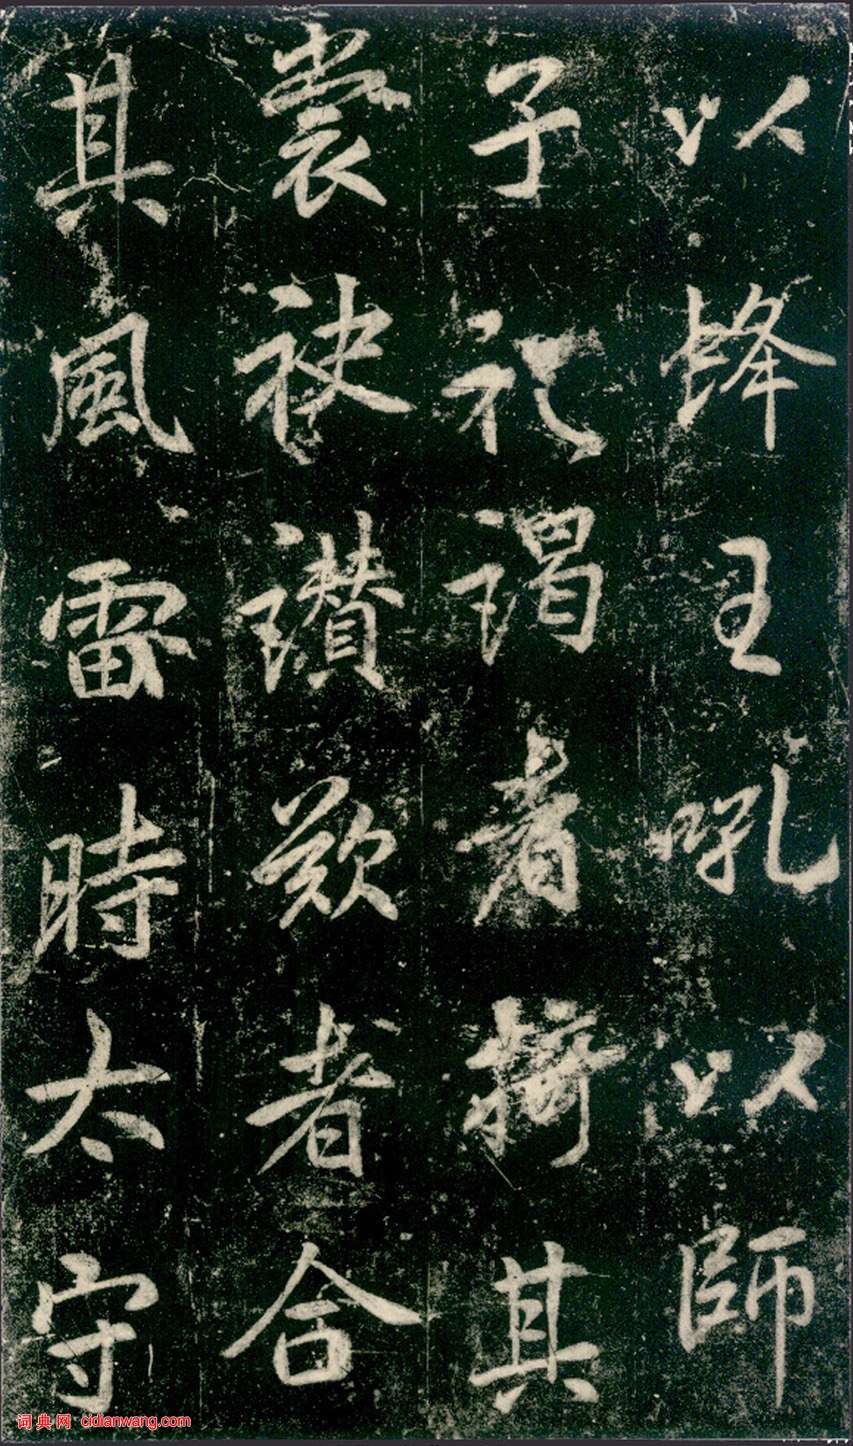 以烽主吼以師
子礼謁者擠其
裳袂讃歎者合
其風雷時太守
词典网 cidianwang.com